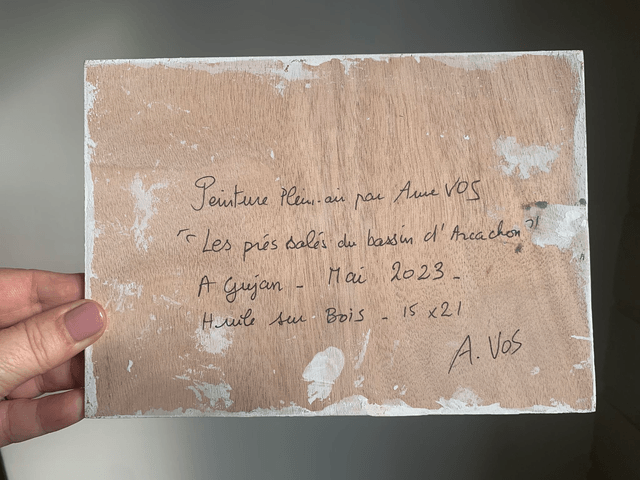 Peinture Plein-air par Anne VOS
"Les prés salés du bassin d'Arcachon"
A Gujan - Mai 2023 -
Huile sur Bois - 15 x 21
A. VOS